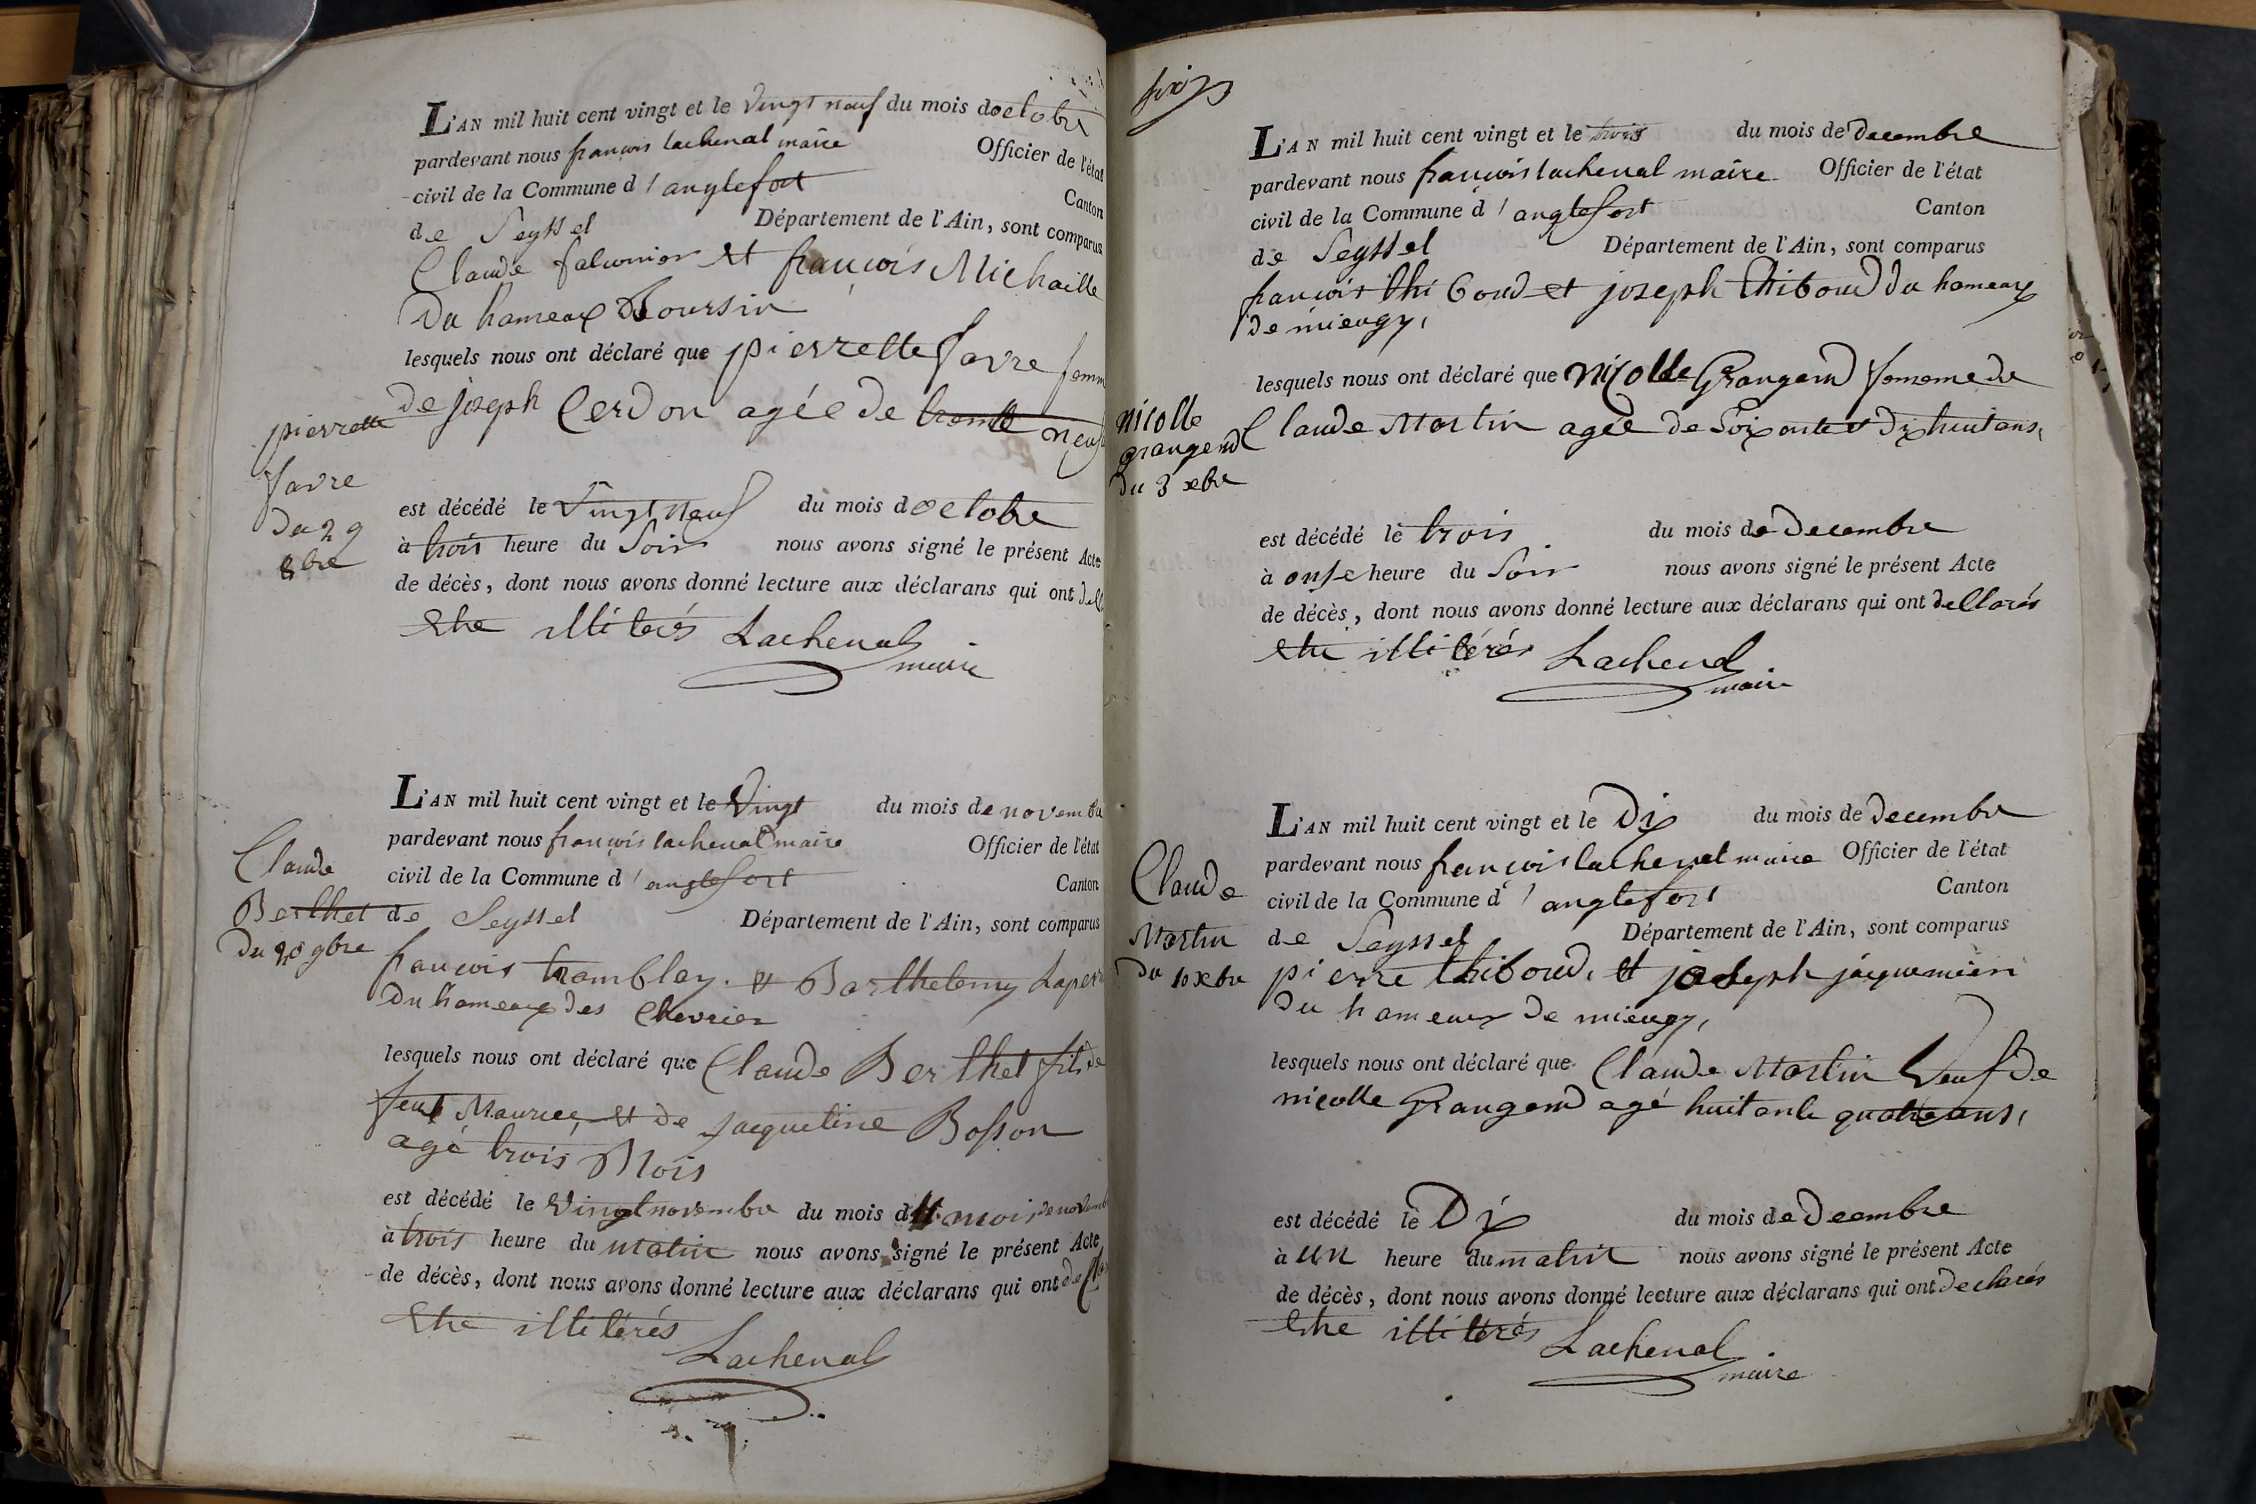 L'AN mil huit cent vingt et le vingt neuf du mois doctobre
pardevant nous françois lachenal maire Officier de l'état
civil de la Commune d'anglefort Canton
de Seyssel Département de l'Ain, sont comparus
Claude falconnier et françois Michaille
Du hameau
lesquels nous ont déclaré que pierrette favre femme
de joseph Cerdon agée de trente neuf
pierrette
favre
du 29
8bre
est décédé le vingt neuf du mois doctobre
à trois heure du Soir nous avons signé le présent Acte
de décès, dont nous avons donné lecture aux déclarans qui ont
etre illiterés Lachenal
maire
L'AN mil huit cent vingt et le vingt du mois de novembre
pardevant nous françois lachenal maire Officier de l'état
civil de la Commune d'anglefort Canton
de Seyssel Département de l'Ain, sont comparus
Claude
Berthet
du 20 9bre
françois tramblay. et Barthelemy
Du hameau des Chevrier
lesquels nous ont déclaré que Claude Berthet fils de
feut Maurice, et de jacqueline Bosson
agé trois Mois
est décédé le vingt novembre du mois du mois de novembre
à trois heure du matin nous avons signé le présent Acte
de décès, dont nous avons donné lecture aux déclarans qui ont
etre illitérés
Lachenal
six
L'AN mil huit cent vingt et le trois du mois de decembre
pardevant nous françois lachenal maire Officier de l'état
civil de la Commune d'anglefort Canton
de Seyssel Département de l'Ain, sont comparus
françois thiboud et joseph thiboud du hameau
de mieugy,
lesquels nous ont déclaré que Nicolle Grangend femme de
Claude Martin agée de Soixante et dix huit ans,
nicolle
grangend
du 3 xbre
est décédé le trois du mois de Decembre
à onse heure du Soir nous avons signé le présent Acte
de décès, dont nous avons donné lecture aux déclarans qui ont dellarés
etre illitérés Lachenal
maire
L'AN mil huit cent vingt et le Dix du mois de decembre
pardevant nous françois lachenal maire Officier de l'état
civil de la Commune d'anglefort Canton
de Seyssel Département de l'Ain, sont comparus
Claude
Martin
du 10 xbre
pierre thiboud, et joseph jacquemien
Du hameau de mieugy,
lesquels nous ont déclaré que Claude Martin Veuf de
nicolle Grangend agé huitante quatre ans,
est décédé le Dix du mois de Decembre
à un heure du matin nous avons signé le présent Acte
de décès, dont nous avons donné lecture aux déclarans qui ont declarés
etre illitérés Lachenal
maire